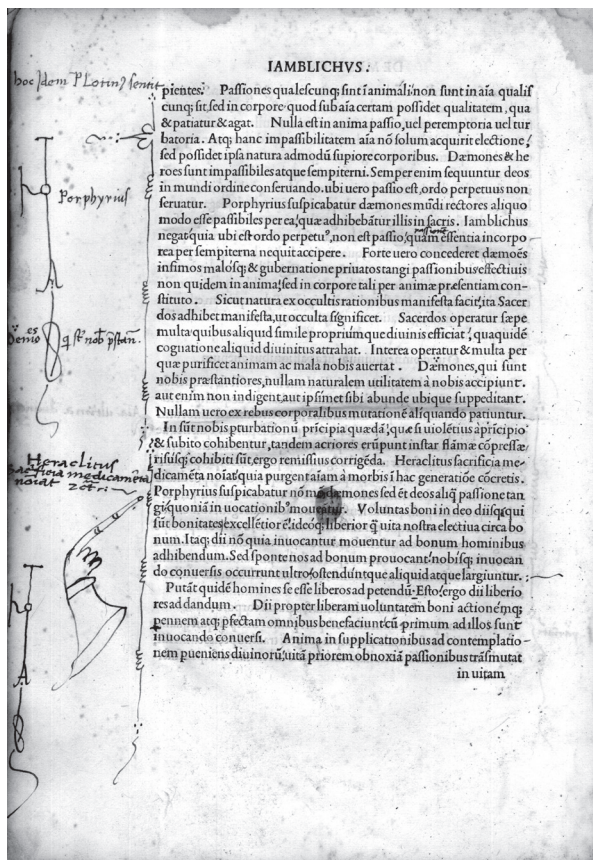 IAMBLICHVS.
hoc Idem Plotin9 sentit
pientes. Passiones qualescunq; sint ī animali, non sunt in aīa qualis
cunq; sit, sed in corpore quod sub aīa certam possidet qualitatem, qua
& patiatur & agat. Nulla est in anima passio, uel peremptoria uel tur
batoria. Atq; hanc impassibilitatem aīa nō solum acquirit electione,
sed possidet ipsa natura admodū supiore corporibus. Dæmones & he
roes sunt impassibiles atque sempiterni. Semper enim sequuntur deos
in mundi ordine conseruando. ubi uero passio est, ordo perpetuus non
seruatur. Porphyrius suspicabatur dæmones mūdi rectores aliquo
Porphyrius
modo esse passibiles per ea, quæ adhibebātur illis in sacris. Iamblichus
negat, quia ubi est ordo perpetu9, non est passio, quam essentia incorpo
passione
rea per sempiterna nequit accipere. Forte uero concederet dæmoēs
infimos malosq; & gubernatione priuatos tangi passionibus effectiuis
non quidem in anima, sed in corpore tali per animæ præsentiam con-
stituto. Sicut natura ex occultis rationibus manifesta facit, ita Sacer
dos adhibet manifesta, ut occulta significet. Sacerdos operatur sæpe
multa quibus aliquid simile propriumque diuinis efficiat, quaquidē
cognatione aliquid diuinitus attrahat. Interea operatur & multa per
quæ purificet animam ac mala nobis auertat. Dæmones, qui sunt
nobis præstantiores, nullam naturalem utilitatem à nobis accipiunt.
aut enim non indigent, aut ipsimet sibi abunde ubique suppeditant.
Nullam uero ex rebus corporalibus mutationē aliquando patiuntur.
In sūt nobis pturbationū prīcipia quædā, quæ si uiolētius à prīcipio
& subito cohibentur, tandem acriores erūpunt instar flāmæ cōpressæ
Heraclitus
risusq; cohibiti sūt, ergo remissius corrigēda. Heraclitus sacrificia me-
sacrificia medicamēta
dicamēta noīat, quia purgent aīam à morbis ī hac generatiōe cōcretis.
noiat
Porphyrius suspicabatur nō mō dæmones sed ēt deos aliq passione tan
gi, quoniā in uocationib9 mouentur. Voluntas boni in deo diisq; qui
sūt bonitates, excellētior ē, ideoq; liberior q̄ uita nostra electiua circa bo
num. Itaq; dii nō quia inuocantur mouentur ad bonum hominibus
adhibendum. Sed sponte nos ad bonum prouocant, nobisq; inuocan
do conuersis occurrunt ultro, ostenduntque aliquid atque largiuntur.
Putāt quidē homines se esse liberos ad petendū. Esto, ergo dii liberio
res ad dandum. Dii propter liberam uoluntatem boni actionēmq;
pennem atq; pfectam omnibus benefaciunt, cū primum ad illos sunt
inuocando conuersi. Anima in supplicationibus ad contemplatio-
nem pueniens diuinorū, uitā priorem obnoxiā passionibus trāsmutat
in uitam